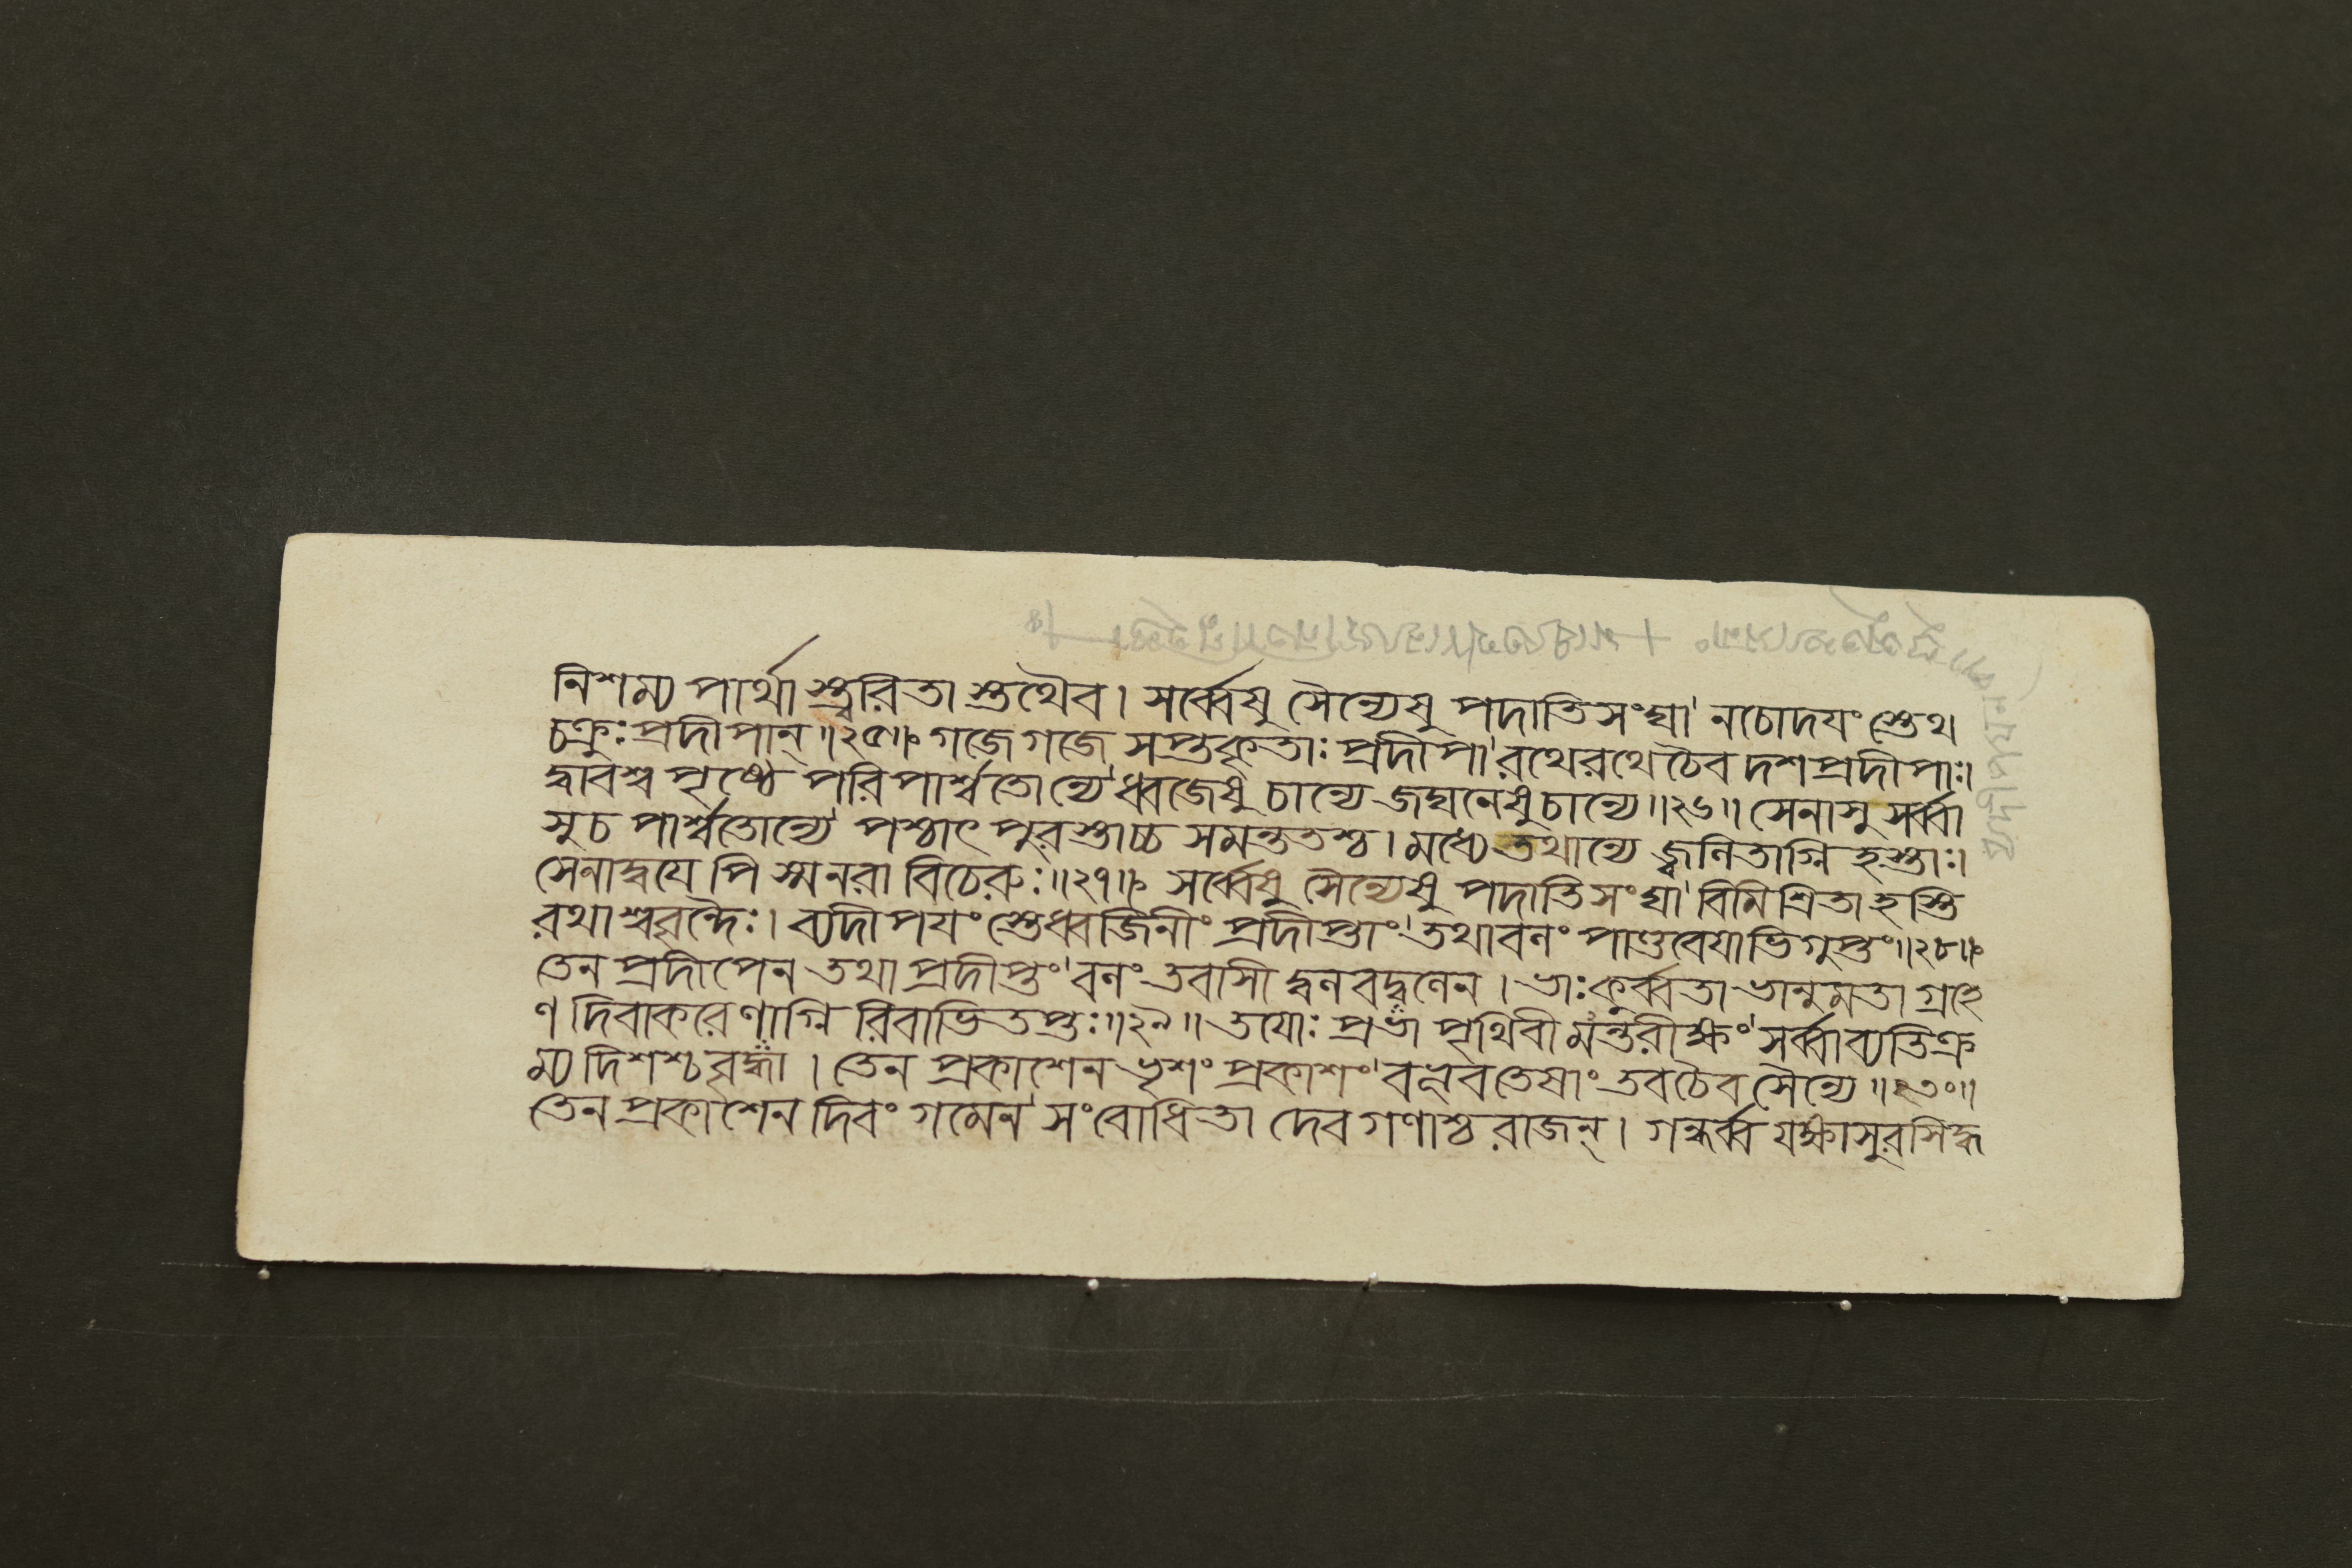 নিশম্য পার্থা স্ত্বরিতা স্তথৈব। সর্ব্বেষু সৈন্যেষু পদাতিসংঘা' নচোদযং স্তেথ
চক্রুঃ প্রদীপান্॥২৫॥ গজে গজে সপ্তকৃতাঃ প্রদীপা'রথেরথেচৈব দশপ্রদীপাঃ।
দ্বাবশ্ব পৃষ্ঠে পরিপার্শ্বতোন্যে'ধ্বজেষু চান্যে জঘনেষুচান্যে॥২৬॥ সেনাসু সর্ব্বা
সুচ পার্শ্বতোন্যে' পশ্চাৎ পুরস্তাচ্চ সমন্ততশ্চ। মধ্যে তথান্যে জ্বলিতাগ্নি হস্তাঃ।
সেনাদ্বযে পি স্মনরা বিচেরুঃ॥২৭॥ সর্ব্বেষু সৈন্যেষু পদাতিসংঘা'বিমিশ্রিতা হস্তি
রথাশ্ববৃন্দৈঃ। ব্যদীপযং স্তেধ্বজিনীং প্রদীপ্তাং'তথাবলং পাণ্ডবেযাভিগুপ্তং॥২৮॥
তেন প্রদীপেন তথা প্রদীপ্তং'বলং তবাসী দ্বলবদ্বলেন। ভাঃকুর্ব্বতা ভানুমতা গ্রহে
ণ দিবাকরেণাগ্নি রিবাভিতপ্তঃ॥২৯॥ তযোঃ প্রভা পৃথিবী মন্তরীক্ষং'সর্ব্বাব্যতিক্র
ম্য দিশশ্চ বৃদ্ধা। তেন প্রকাশেন ভৃশং প্রকাশং'বভূবতেষাং তবচৈব সৈন্যে॥৩০॥
তেন প্রকাশেন দিবং গমেন'সংবোধিতা দেবগণাশ্চ রাজন্। গন্ধর্ব্ব যক্ষাসুরসিদ্ধ